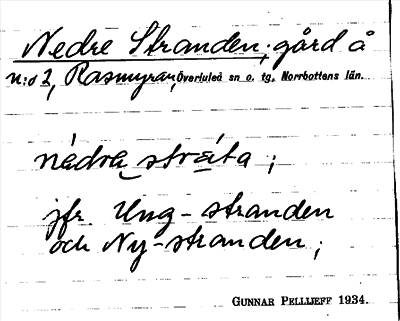 Nedre Stranden; gård å
n:o 2, Rasmyran, Överluleå sn o. tg. Norrbottens län.
nedra stra ta;
jfr Ung-stranden
och Ny-stranden;
GUNNAR PELLIJEFF 1934.